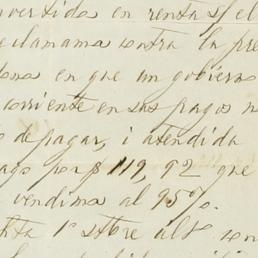 nvertida en renta s/ el
eclamama contra la pre
dona en que un gobierno
corriente en sus pagos n
o de pagar, i atendida
ago por $ 119, 92 que
vendima al 95%.
1º